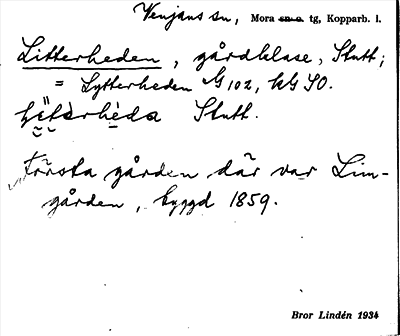 Venjans sn, Mora sn o. tg, Kopparb. l.
Litterheden, gårdklase, Slutt;
= Lytterheden G 102, kG SO.
Slutt.
"Första gården där var Lim-
gården, byggd 1859.
Bror Lindén 1934